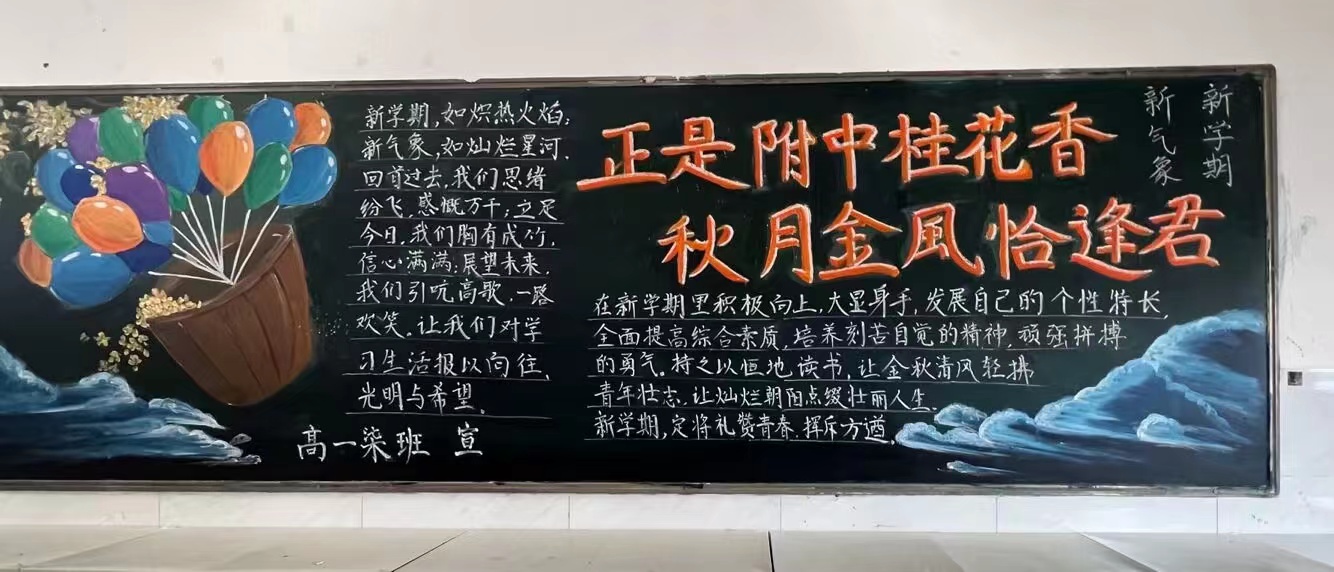 新学期,如炽热火焰;
新气象,如灿烂星河.
回首过去,我们思绪
纷飞,感慨万千;立足
今日,我们胸有成竹,
信心满满;展望未来,
我们引吭高歌,一路
欢笑,让我们对学
习生活报以向往、
光明与希望。
高一柒班 宣
正是附中桂花香
秋月金風恰逢君
新学期
新气象
在新学期里积极向上,大显身手,发展自己的个性特长,
全面提高综合素质,培养刻苦自觉的精神,顽强拼搏
的勇气。持之以恒地读书,让金秋清风轻拂
青年壮志,让灿烂朝阳点缀壮丽人生。
新学期,定将礼赞青春,挥斥方遒。